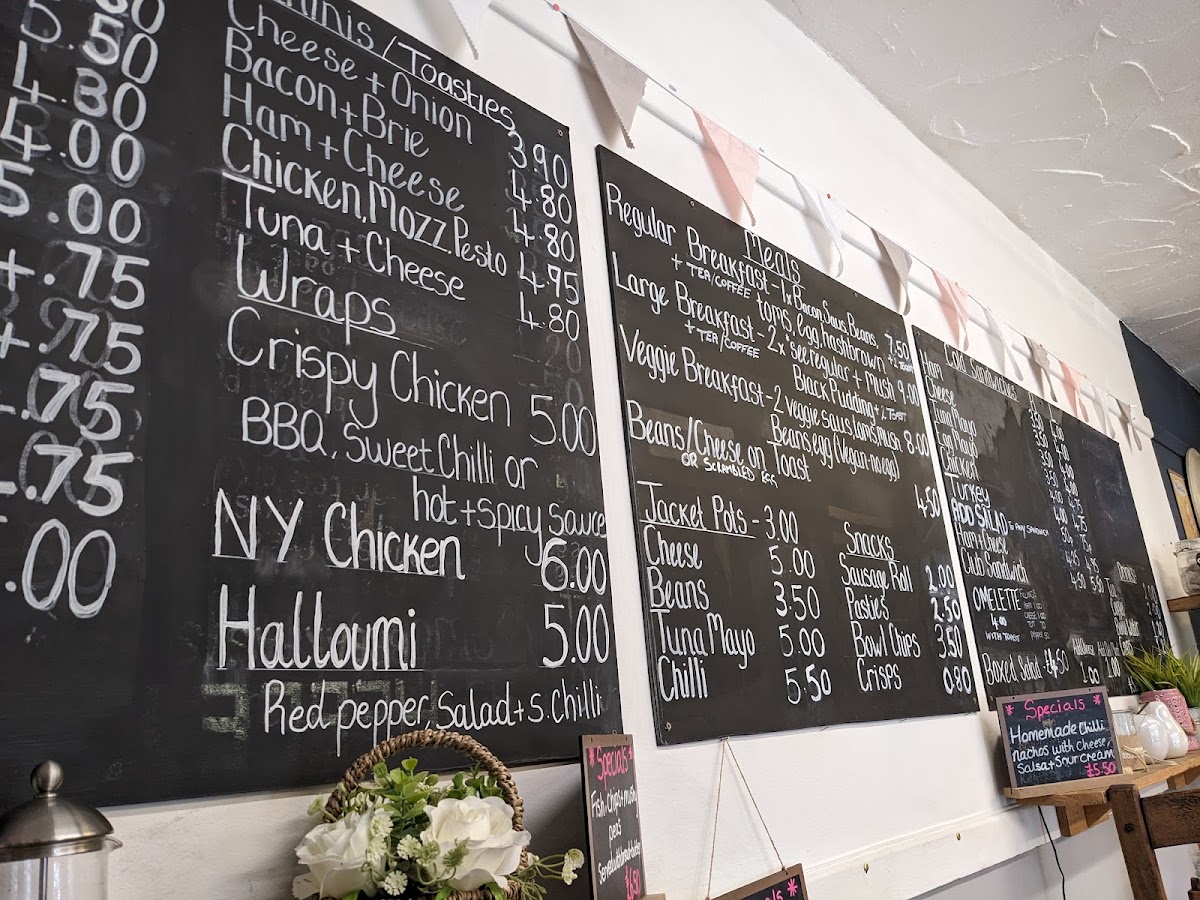 5.50
4.80
4.00
5.00
+.75
+.75
.75
.75
.00
Toasties
Cheese + Onion 3.90
Bacon + Brie 4.80
Ham + Cheese 4.80
Chicken, Mozz, Pesto 4.95
Tuna + Cheese 4.80
Wraps
Crispy Chicken 5.00
BBQ, Sweet Chilli or
hot + spicy sauce
NY Chicken 6.00
Halloumi 5.00
Red pepper, Salad + s.chilli
Meals
Regular Breakfast - 1x Bacon, Saus, Beans,
+ TEA/COFFEE toms, egg, hashbrown + 2 TOAST 7.50
Large Breakfast - 2x *see regular + Mush 9.00
+ TEA/COFFEE Black Pudding + 2 TOAST
Veggie Breakfast - 2 veggie saus, toms, mush 8.00
Beans, egg (Vegan-no egg)
Beans/Cheese on Toast 4.50
OR SCRAMBLED EGG
Jacket Pots - 3.00
Cheese 5.00
Beans 3.50
Tuna Mayo 5.00
Chilli 5.50
Snacks
Sausage Roll 2.00
Pasties 2.50
Bowl Chips 3.50
Crisps 0.80
Cold Sandwiches
Ham
Cheese
Tuna Mayo
Egg Mayo
Chicken
Turkey
ADD SALAD TO ANY SANDWICH
Ham + Cheese
Club Sandwich
OMELETTE
4.00
WITH TOAST
Boxed Salad £4.50
Drinks
*Specials*
Fish, chips + mushy
peas
6.50
*Specials*
Homemade Chilli
nachos with Cheese,
Salsa + Sour Cream
£5.50